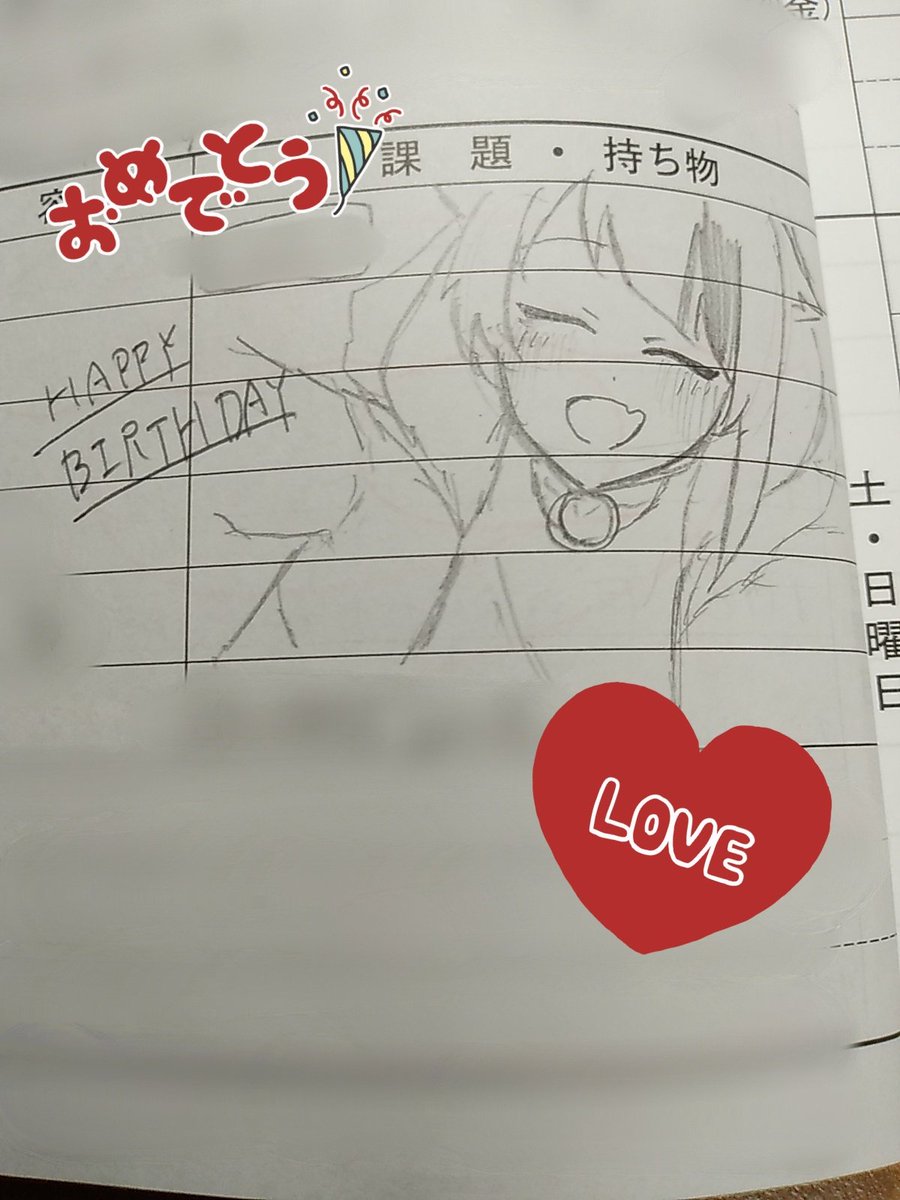 金)
おめでとう
課題・持ち物
HAPPY
BIRTHDAY
土・日曜日
LOVE